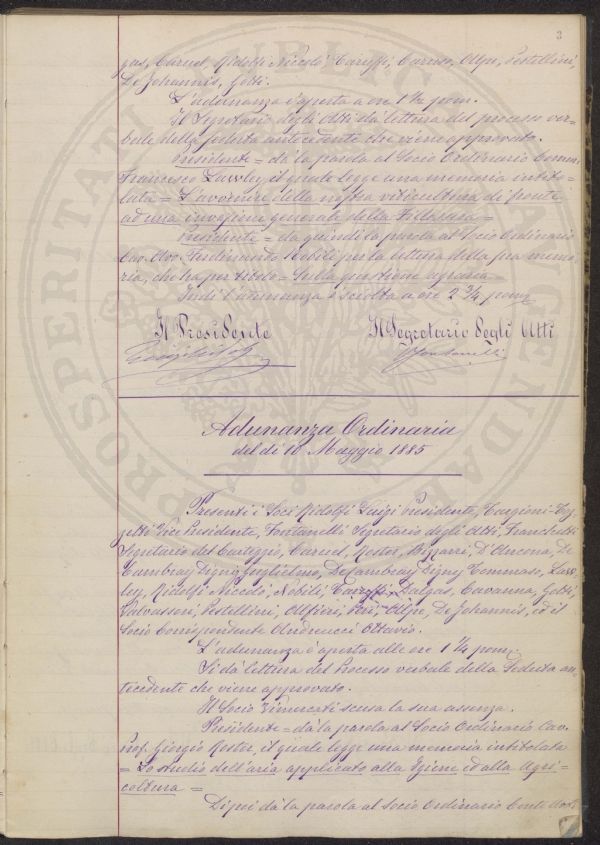 3
gas, Caruel, Ridolfi Niccolò, Caruso, Alpe, Pestellini,
De Johannis, Gotti.
L'adunanza è aperta a ore 1 ¼ pom.
Il Segretario degli Atti dà lettura del processo ver=
bale della seduta antecedente che viene approvato.
Presidente = dà la parola al Socio Ordinario Comm.
Francesco Lawley, il quale legge una memoria intito=
lata = L'avvenire della nostra viticultura di fronte
ad una invasione generale della Fillossera =
Presidente = da quindi la parola al Socio Ordinario
Cav. Avv. Ferdinando Nobili per la lettura della sua memo
ria, che ha per titolo = Sulla questione agraria
Indi l'adunanza è sciolta a ore 2 ¾ pom.
Il Presidente Il Segretario degli Atti
Adunanza Ordinaria
del dì 10 Maggio 1885
Presenti i Soci Ridolfi Luigi Presidente, Targioni-Toz
zetti Vice Presidente, Fontanelli Segretario degli Atti, Franchetti
Segretario del Carteggio, Caruel, Roster, Bizzarri, D'Ancona, De
Cambray Digny Guglielmo, De Cambray Digny Tommaso, Law
ley, Ridolfi Niccolò, Nobili, Dalgas, Cavanna, Gotti
Valvassori, Pestellini, Alfieri, Alpe, De Johannis, ed il
Socio Corrispondente Andreucci Ottavio.
L'adunanza è aperta alle ore 1 ¼ pom.
Si dà lettura del Processo verbale della Seduta an=
tecedente che viene approvato.
Il Socio Vimercati scusa la sua assenza.
Presidente = dà la parola al Socio Ordinario Cav.
Prof. Giorgio Roster, il quale legge una memoria intitolata
= Lo studio dell'aria applicato alla Igiene ed alla Agri=
coltura =
Dipoi dà la parola al Socio Ordinario Conte
PROSPERITATI PUBLICAE AUGENDAE